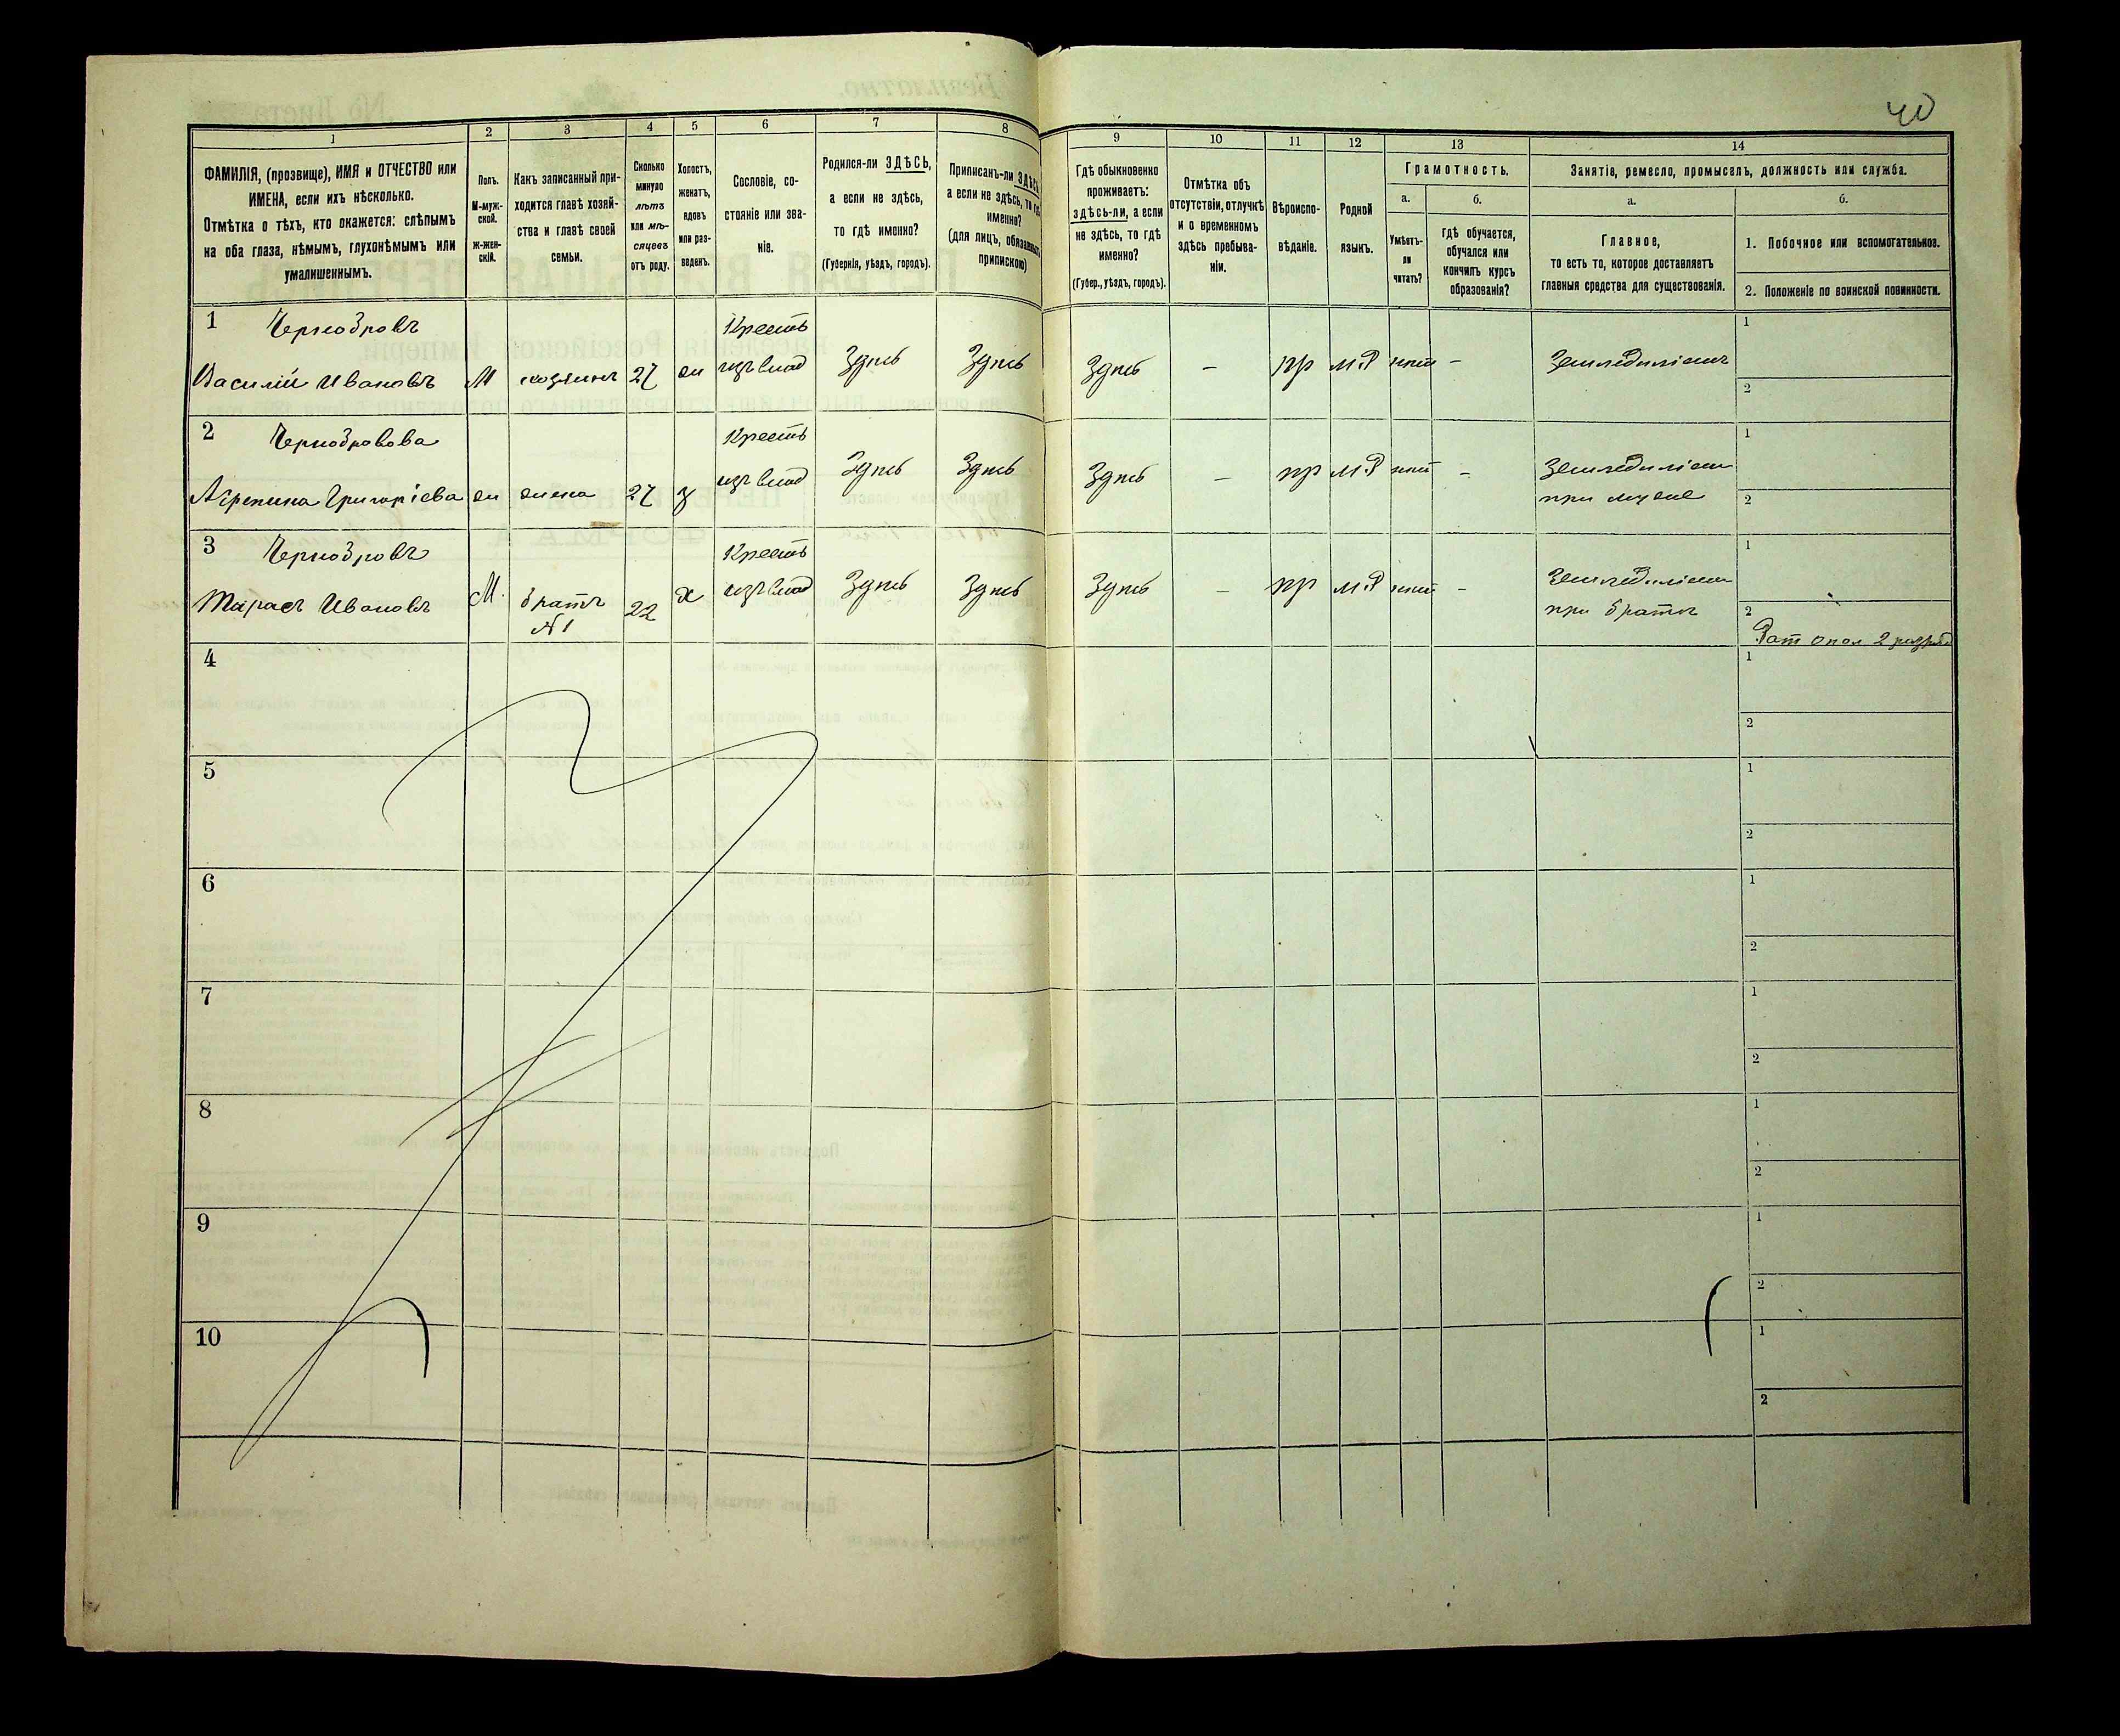 40
1
2
3
4
5
6
7
8
9
10
11
12
13
14
ФАМИЛІЯ, (прозвище), ИМЯ и ОТЧЕСТВО или
ИМЕНА, если ихъ нѣсколько.
Отмѣтка о тѣхъ, кто окажется: слѣпымъ
на оба глаза, нѣмымъ, глухонѣмымъ или
умалишеннымъ.
Полъ.
М-муж-
ской.
ж-жен-
скій.
Какъ записанный при-
ходится главѣ хозяй-
ства и главѣ своей
семьи.
Сколько
минуло
лѣтъ
или мѣ-
сяцевъ
отъ роду.
Холостъ,
женатъ,
вдовъ
или раз-
веденъ.
Сословіе, со-
стояніе или зва-
ніе.
Родился-ли ЗДѢСЬ,
а если не здѣсь,
то гдѣ именно?
(Губернія, уѣздъ, городъ).
Приписанъ-ли ЗДѢСЬ,
а если не здѣсь, то гдѣ
именно?
(для лицъ, обязанныхъ
припискою)
Гдѣ обыкновенно
проживаетъ:
здѣсь-ли, а если
не здѣсь, то гдѣ
именно?
(Губер., уѣздъ, городъ).
Отмѣтка объ
отсутствіи, отлучкѣ
и о временномъ
здѣсь пребыва-
ніи.
Вѣроиспо-
вѣданіе.
Родной
языкъ.
Грамотность.
а.
Умѣетъ-
ли
читать?
б.
гдѣ обучается,
обучался или
кончилъ курсъ
образованія?
Занятіе, ремесло, промыселъ, должность или служба.
а.
Главное,
то есть то, которое доставляетъ
главныя средства для существованія.
б.
1. Побочное или вспомогательное.
2. Положеніе по воинской повинности.
1 Чернобровъ Крестъ 1
Василій Ивановъ М хозяинъ 27 ж изъ влад Здѣсь Здѣсь Здѣсь — пр м.р нѣт — Земледѣліемъ
2
2 Чернобровова Крестъ 1
Агрепина Григоріева ж жена 27 з изъ влад Здѣсь Здѣсь Здѣсь — пр м.р нѣт — Земледѣліем
при мужѣ 2
3 Чернобровъ Крестъ 1
Тарасъ Ивановъ М. братъ 22 х изъ влад Здѣсь Здѣсь Здѣсь — пр м.р нѣт — Земледѣліем
№1 при братѣ 2
Рат опол 2 разряд
4 1
2
5 1
2
6 1
2
7 1
2
8 1
2
9 1
2
10 1
2